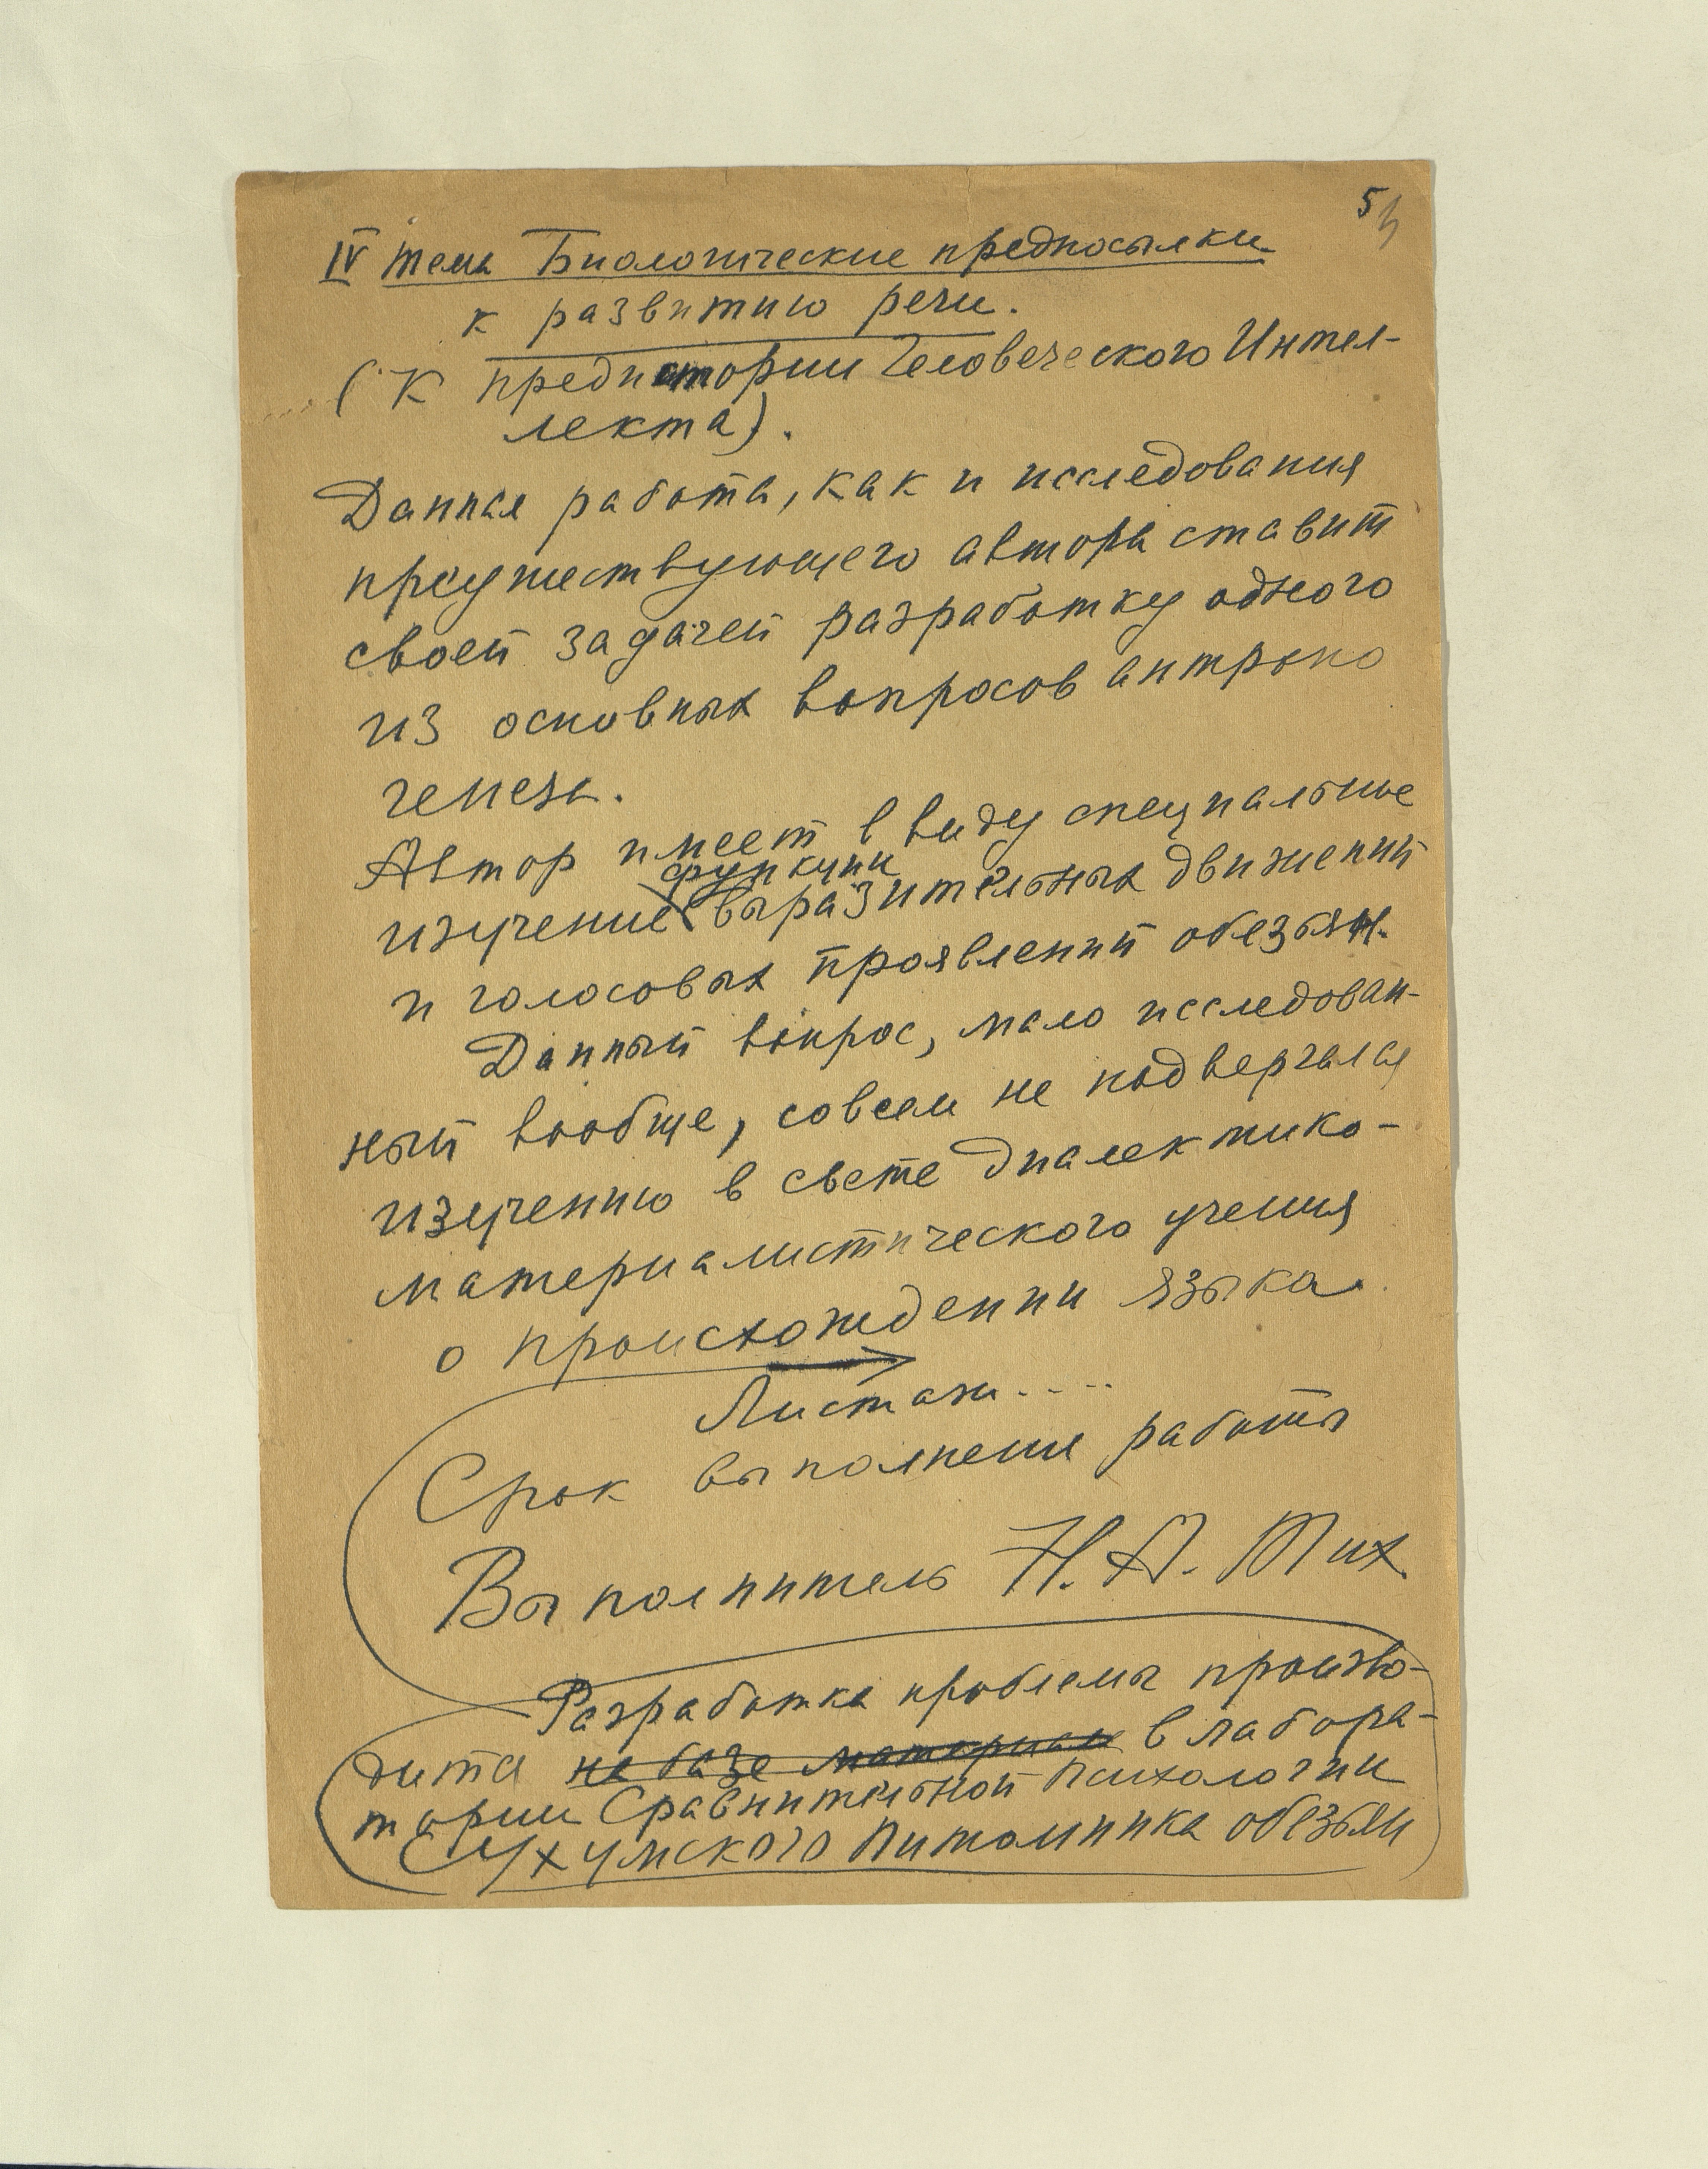 5
IV тема Биологические предпосылки
к развитию речи.
(К предистории Человеческого Интел-
лекта).
Данная работа, как и исследования
предшествующего автора ставит
своей задачей разработку одного
из основных вопросов антропо
генеза.
Автор имеет в виду специальное
функции
изучение выразительных движений
и голосовых проявлений обезьян.
Данный вопрос, мало исследован-
ный вообще, совсем не подвергался
изучению в свете диалектико-
материалистического учения
о происхождении языка.
Листаж....
Срок выполнения работы
Выполнитель Н.А. Тих.
Разработка проблемы произво-
дится на базе материала в лабора-
тории Сравнительной Психологии
Сухумского Питомника обезьян